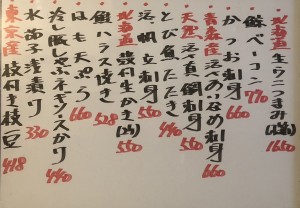 北海道生ウニつまみ(塩水)1650
鯨ベーコン 770
かつお刺身 660
青森産活〆あいなめ刺身 660
天然活〆真鯛刺身 550
とび魚たたき 440
活〆帆立刺身 550
北海道殻付生かき(内) 550
銀ハラス焼き 528
はも天ぷら 660
冷し豚しゃぶネギ
水茄子浅漬り 330
東京産枝付き枝豆 418